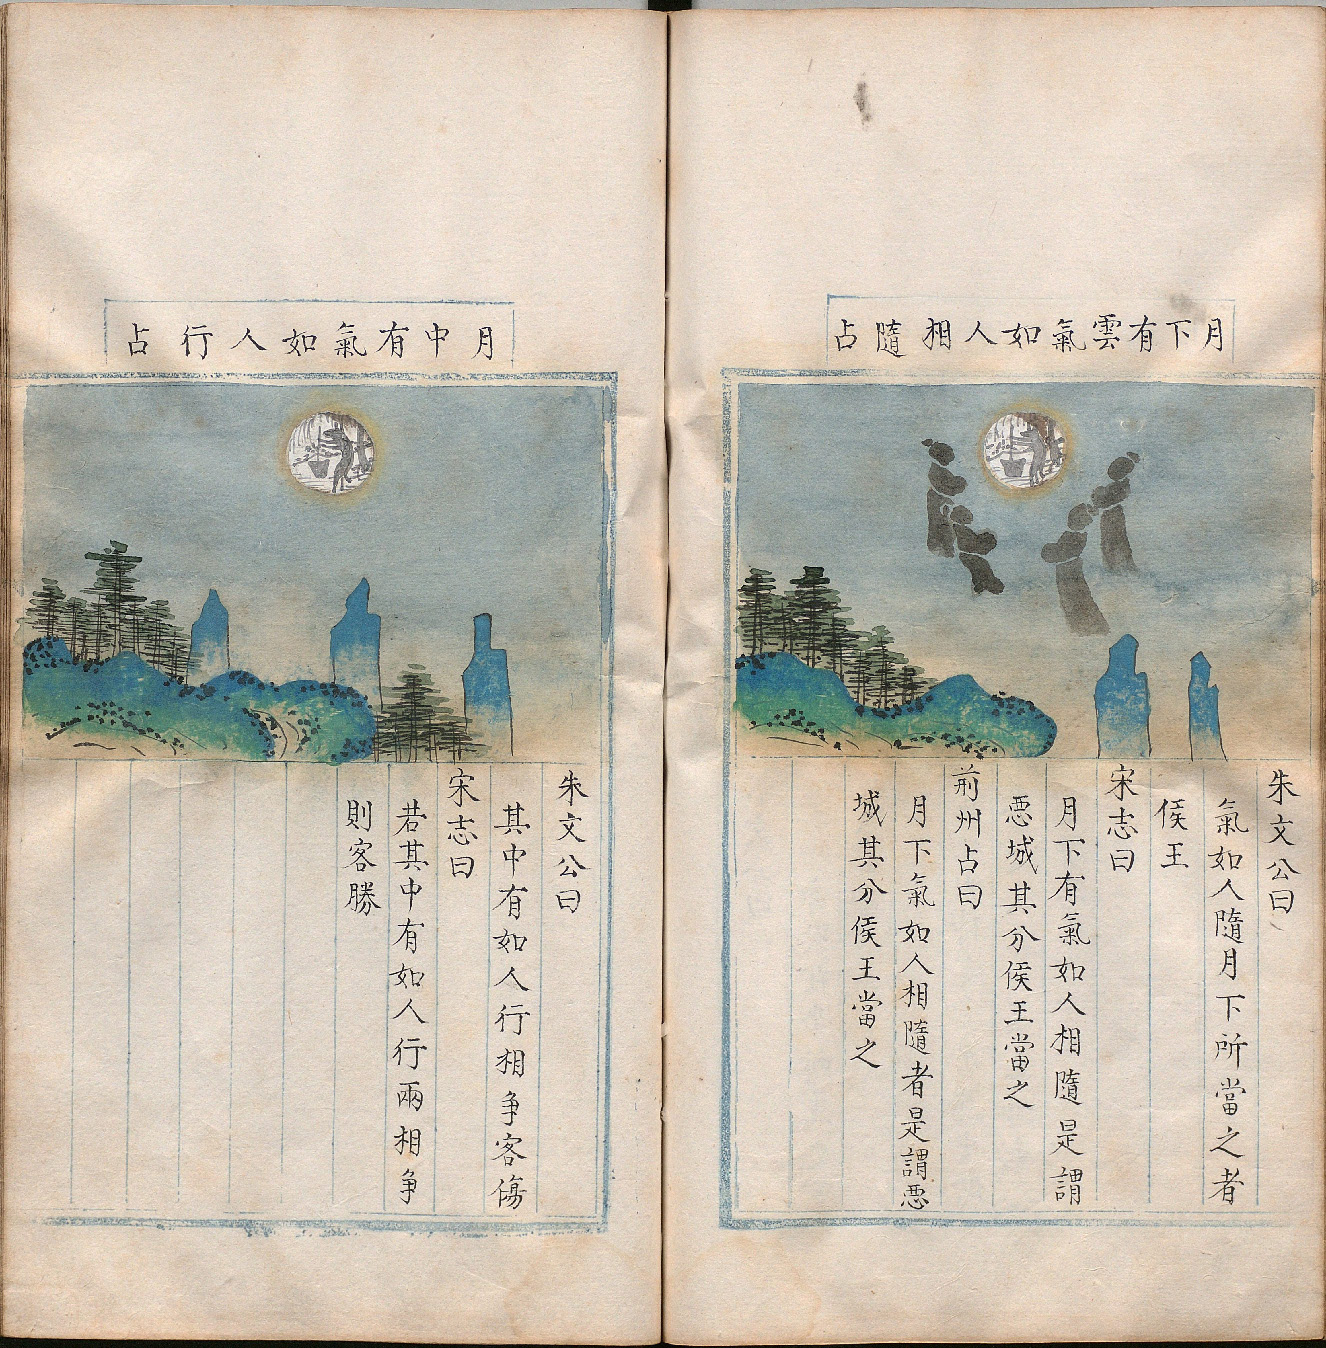 月下有雲氣如人相隨占
朱文公曰
氣如人隨月下所當之者
侯王
宋志曰
月下有氣如人相隨是謂
惡城其分侯王當之
荊州占曰
月下氣如人相隨者是謂惡
城其分侯王當之
月中有氣如人行占
朱文公曰
其中有如人行相爭客傷
宋志曰
若其中有如人行兩相爭
則客勝